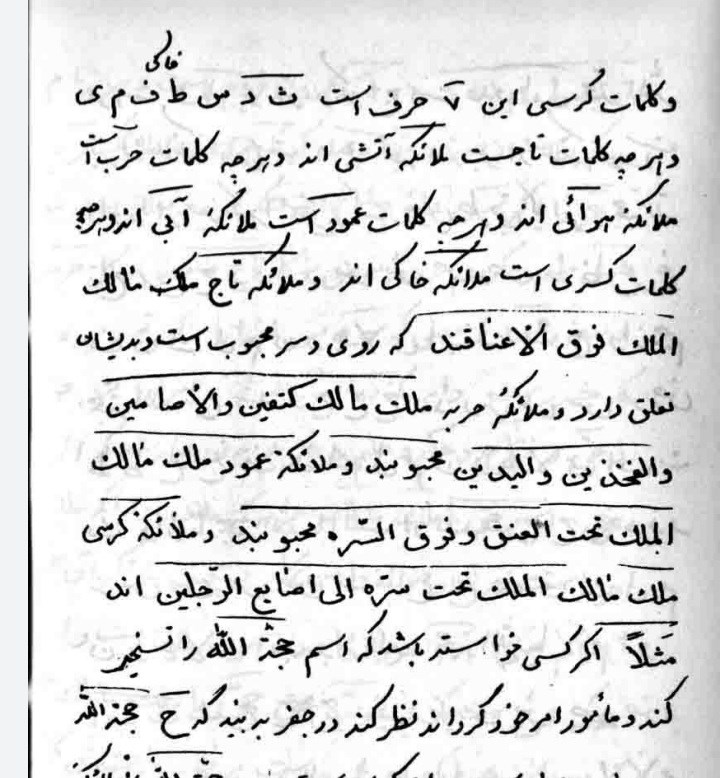 خاکی
وکلمات کرسی این ۷ حرف است ث د س ط ف م ی
و هرچه کلمات تاجست ملائکه آتشی اند و هر چه کلمات حرب است
ملائکهٔ هوائی اند و هرچه کلمات عمود است ملائکهٔ آبی اند و هرچه
کلمات کسری است ملائکه خاکی اند و ملائکه تاج ملک مالک
الملک فوق الاعناقند که روی و سر محبوب است و بدیشان
تعلق دارد و ملائکهٔ حربه ملک مالک کتفین والاصامین
والفخذین والیدین محبوبند و ملائکهٔ عمود ملک مالک
الملک تحت العنق و فوق السّره محبوبند و ملائکهٔ کرسی
ملک مالک الملک تحت سرّه الی اصابع الرّجلین اند
مثلاً اکر کسی خواسته باشد که اسم حجة الله را تسخیر
کند و مأمور امر خود گرداند نظر کند در جفر به بیند که ح حجة الله